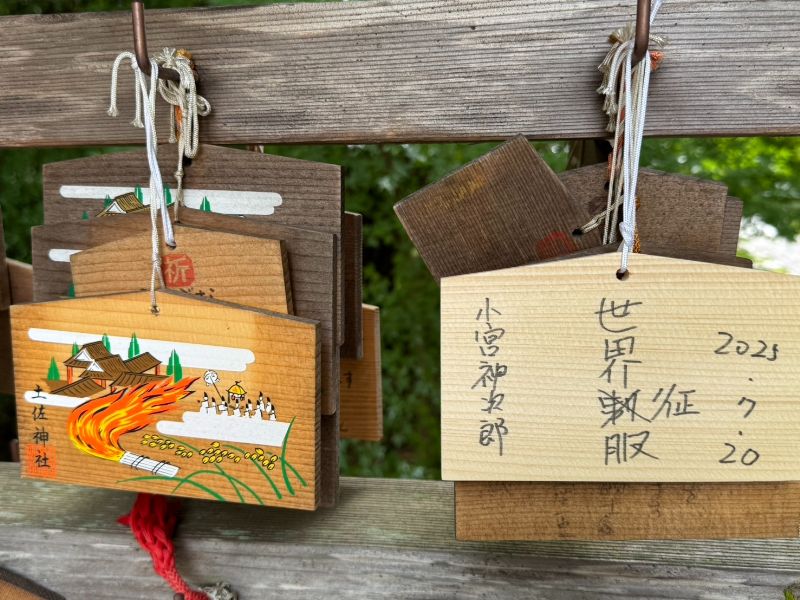 祈
土佐神社
2025.7.20
世界征服
小宮神次郎